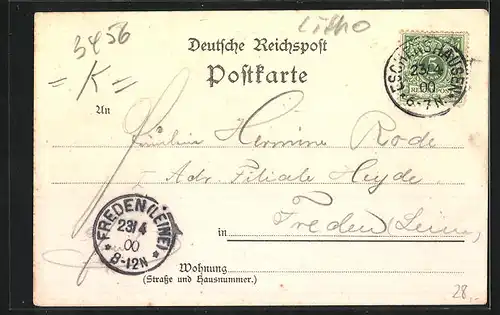 Litho
3456
= K =
Deutsche Reichspost
Postkarte
ESCHERSHAUSEN
23/4
00
*6-7N*
5
REICHSPOST
An
Fräulein Hermine Rode
Adr. Filiale Heyde
in Freden (Leine)
FREDEN (LEINE)
23/4
00
* 8-12N *
Wohnung
(Straße und Hausnummer.)
28.-